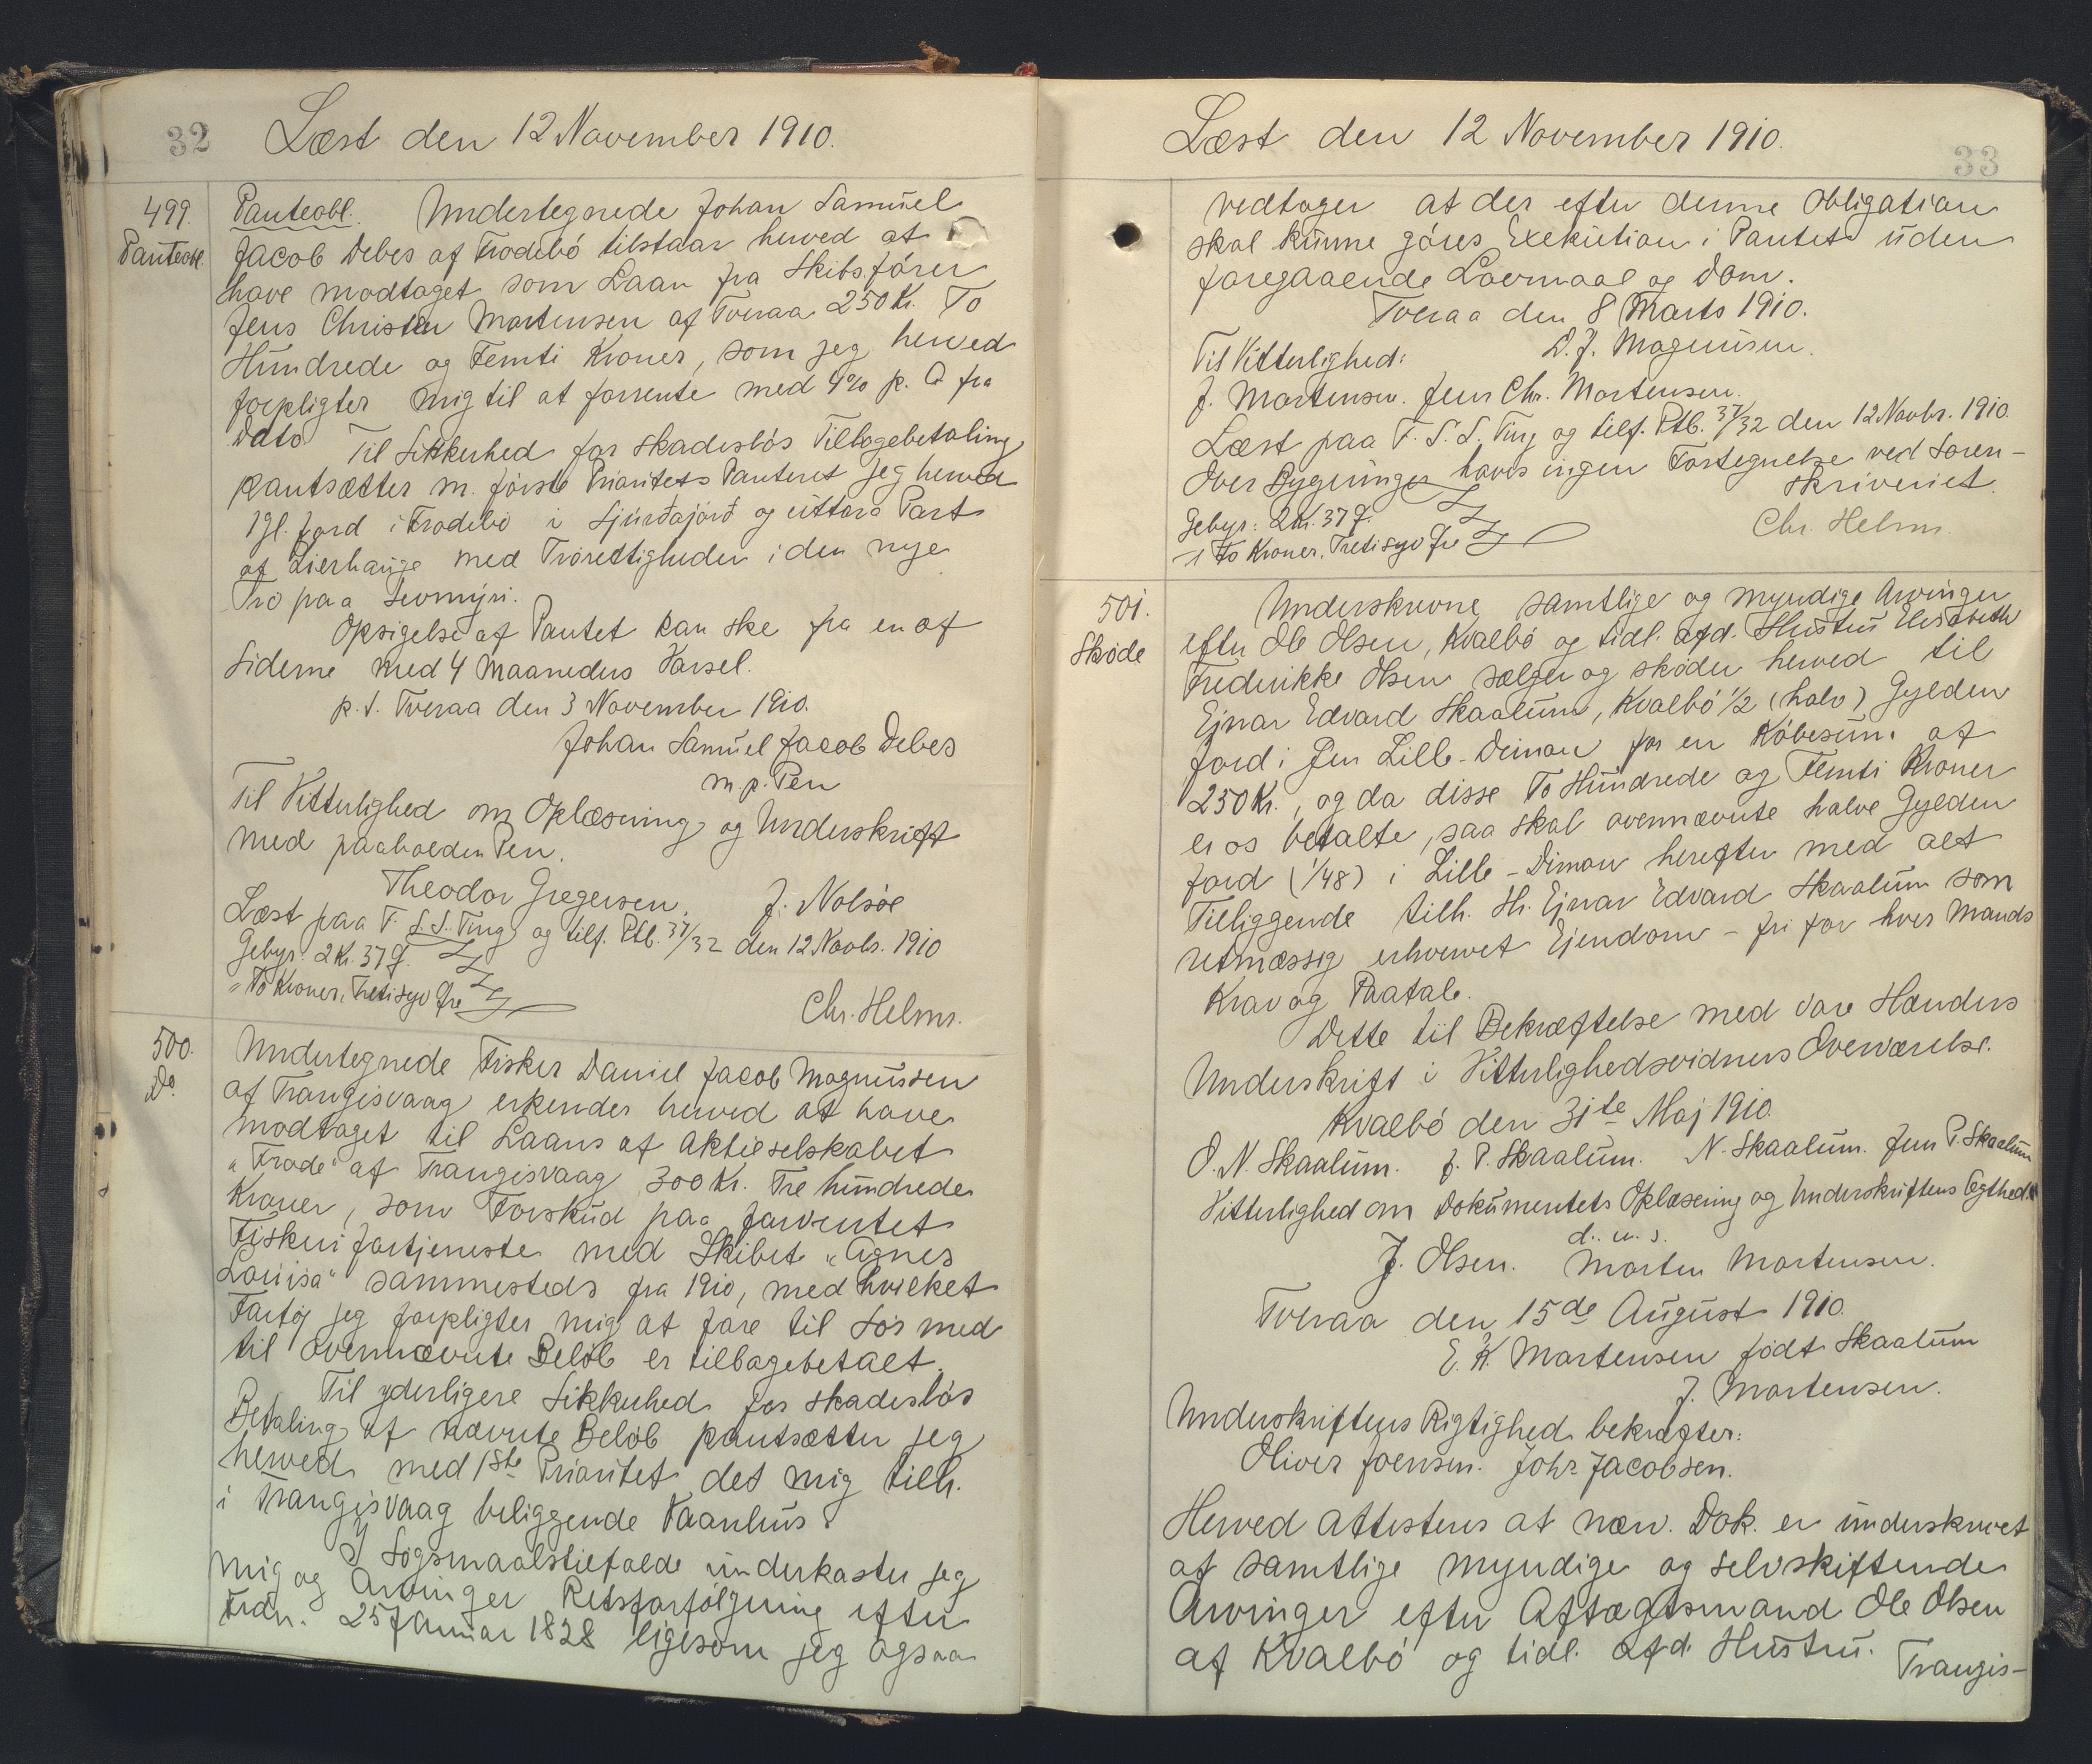 32
Læst den 12 November 1910.
499.
Panteobl.
Panteobl. Undertegnede Johan Samuel
Jacob Debes af Frodebö tilstaar herved at
have modtaget som Laan fra Skibsförer
Jens Christen Mortensen af Tveraa 250 Kr. To
Hundrede og Femti Kroner, som jeg herved
forpligter mig til at forrente med 4% p. a fra
Dato
Til Sikkerhed for skadeslös Tilbagebetaling
pantsætter m. förste Prioritets Panteret jeg herved
1 Gl. Jord i Frodebö i Sjúrðajörð og úttara Part
af Lierhauge med Trörettigheder i den nye
Trö paa Sevmýri.
Opsigelse af Pantet kan ske fra en af
Siderne med 4 Maaneders Varsel.
p. t. Tveraa den 3 November 1910.
Johan Samuel Jacob Debes
m. p. Pen
Til Vitterlighed om Oplæsning og Underskrift
med paaholden Pen.
Theodor Gregersen. J. Nolsöe
Læst paa F. S. S. Ting og tilf. Ptb. 37/32 den 12 Novbr. 1910
Gebyr: 2 Kr. 37 Ø.
" To Kroner, Tretisyv Øre
Chr. Helms.
500.
Do.
Undertegnede Fisker Daniel Jacob Magnussen
af Trangisvaag erkender herved at have
modtaget til Laans af Aktieselskabet
"Frode" af Trangisvaag 300 Kr. Tre hundrede
Kroner, som Forskud paa forventet
Fiskerifortjeneste med Skibet "Agnes
Louisa" sammesteds fra 1910, med hvilket
Fartöj jeg forpligter mig at fare til Sös med
til ovennævnte Belöb er tilbagebetalt.
Til yderligere Sikkerhed for skadeslös
Betaling af nævnte Belöb pantsætter jeg
herved med 1ste Prioritet det mig tilh.
i Trangisvaag beliggende Vaanhus.
I Sögsmaalstilfælde underkaster jeg
mig og Arvinger Retsforfölgning efter
Frdn. 25 Januar 1828 ligesom jeg ogsaa
33
Læst den 12 November 1910.
vedtager at der efter denne Obligation
skal kunne göres Exekution i Pantet uden
foregaaende Lovmaal og Dom.
Tveraa den 8 Marts 1910.
Til Vitterlighed: D. J. Magnusen.
J. Mortensen. Jens Chr. Mortensen.
Læst paa F. S. S. Ting og tilf. Ptb. 37/32 den 12 Novbr. 1910.
Over Bygninger haves ingen Fortegnelse ved Soren-
skriveriet.
Gebyr: 2 Kr. 37 Ø.
" To Kroner, Tretisyv Øre
Chr. Helms.
501.
Skøde
Underskrevne samtlige og myndige Arvinger
efter Ole Olsen, Kvalbö og tidl. afd. Hustru Elisabeth
Frederikke Olsen sælger og sköder herved til
Ejnar Edvard Skaalum, Kvalbö 1/2 (halv) Gylden
Jord i Øen Lille-Dimon for en Köbesum af
250 Kr., og da disse To Hundrede og Femti Kroner
er os betalte, saa skal ovennævnte halve Gylden
Jord (1/48) i Lille-Dimon herefter med alt
Tilliggende tilh. Hr. Ejnar Edvard Skaalum som
retmæssig erhvervet Ejendom - fri for hver Mands
Krav og Paatale.
Dette til Bekræftelse med vore Hænders
Underskrift i Vitterlighedsvidners Overværelse.
Kvalbö den 31te Maj 1910.
O. N. Skaalum. J. P. Skaalum. N. Skaalum. Jens P. Skaalum
Vitterlighed om Dokumentets Oplæsning og Underskriftens Ægthed.
d. u. s.
J. Olsen. Morten Mortensen.
Tveraa den 15de August 1910.
E. K. Mortensen födt Skaalum
J. Mortensen.
Underskriftens Rigtighed bekræfter:
Oliver Joensen. Johs Jacobsen.
Herved attesteres at nærv. Dok. er underskrevet
af samtlige myndige og selvskiftende
Arvinger efter Aftægtsmand Ole Olsen
af Kvalbö og tidl. afd. Hustru. Trangis-